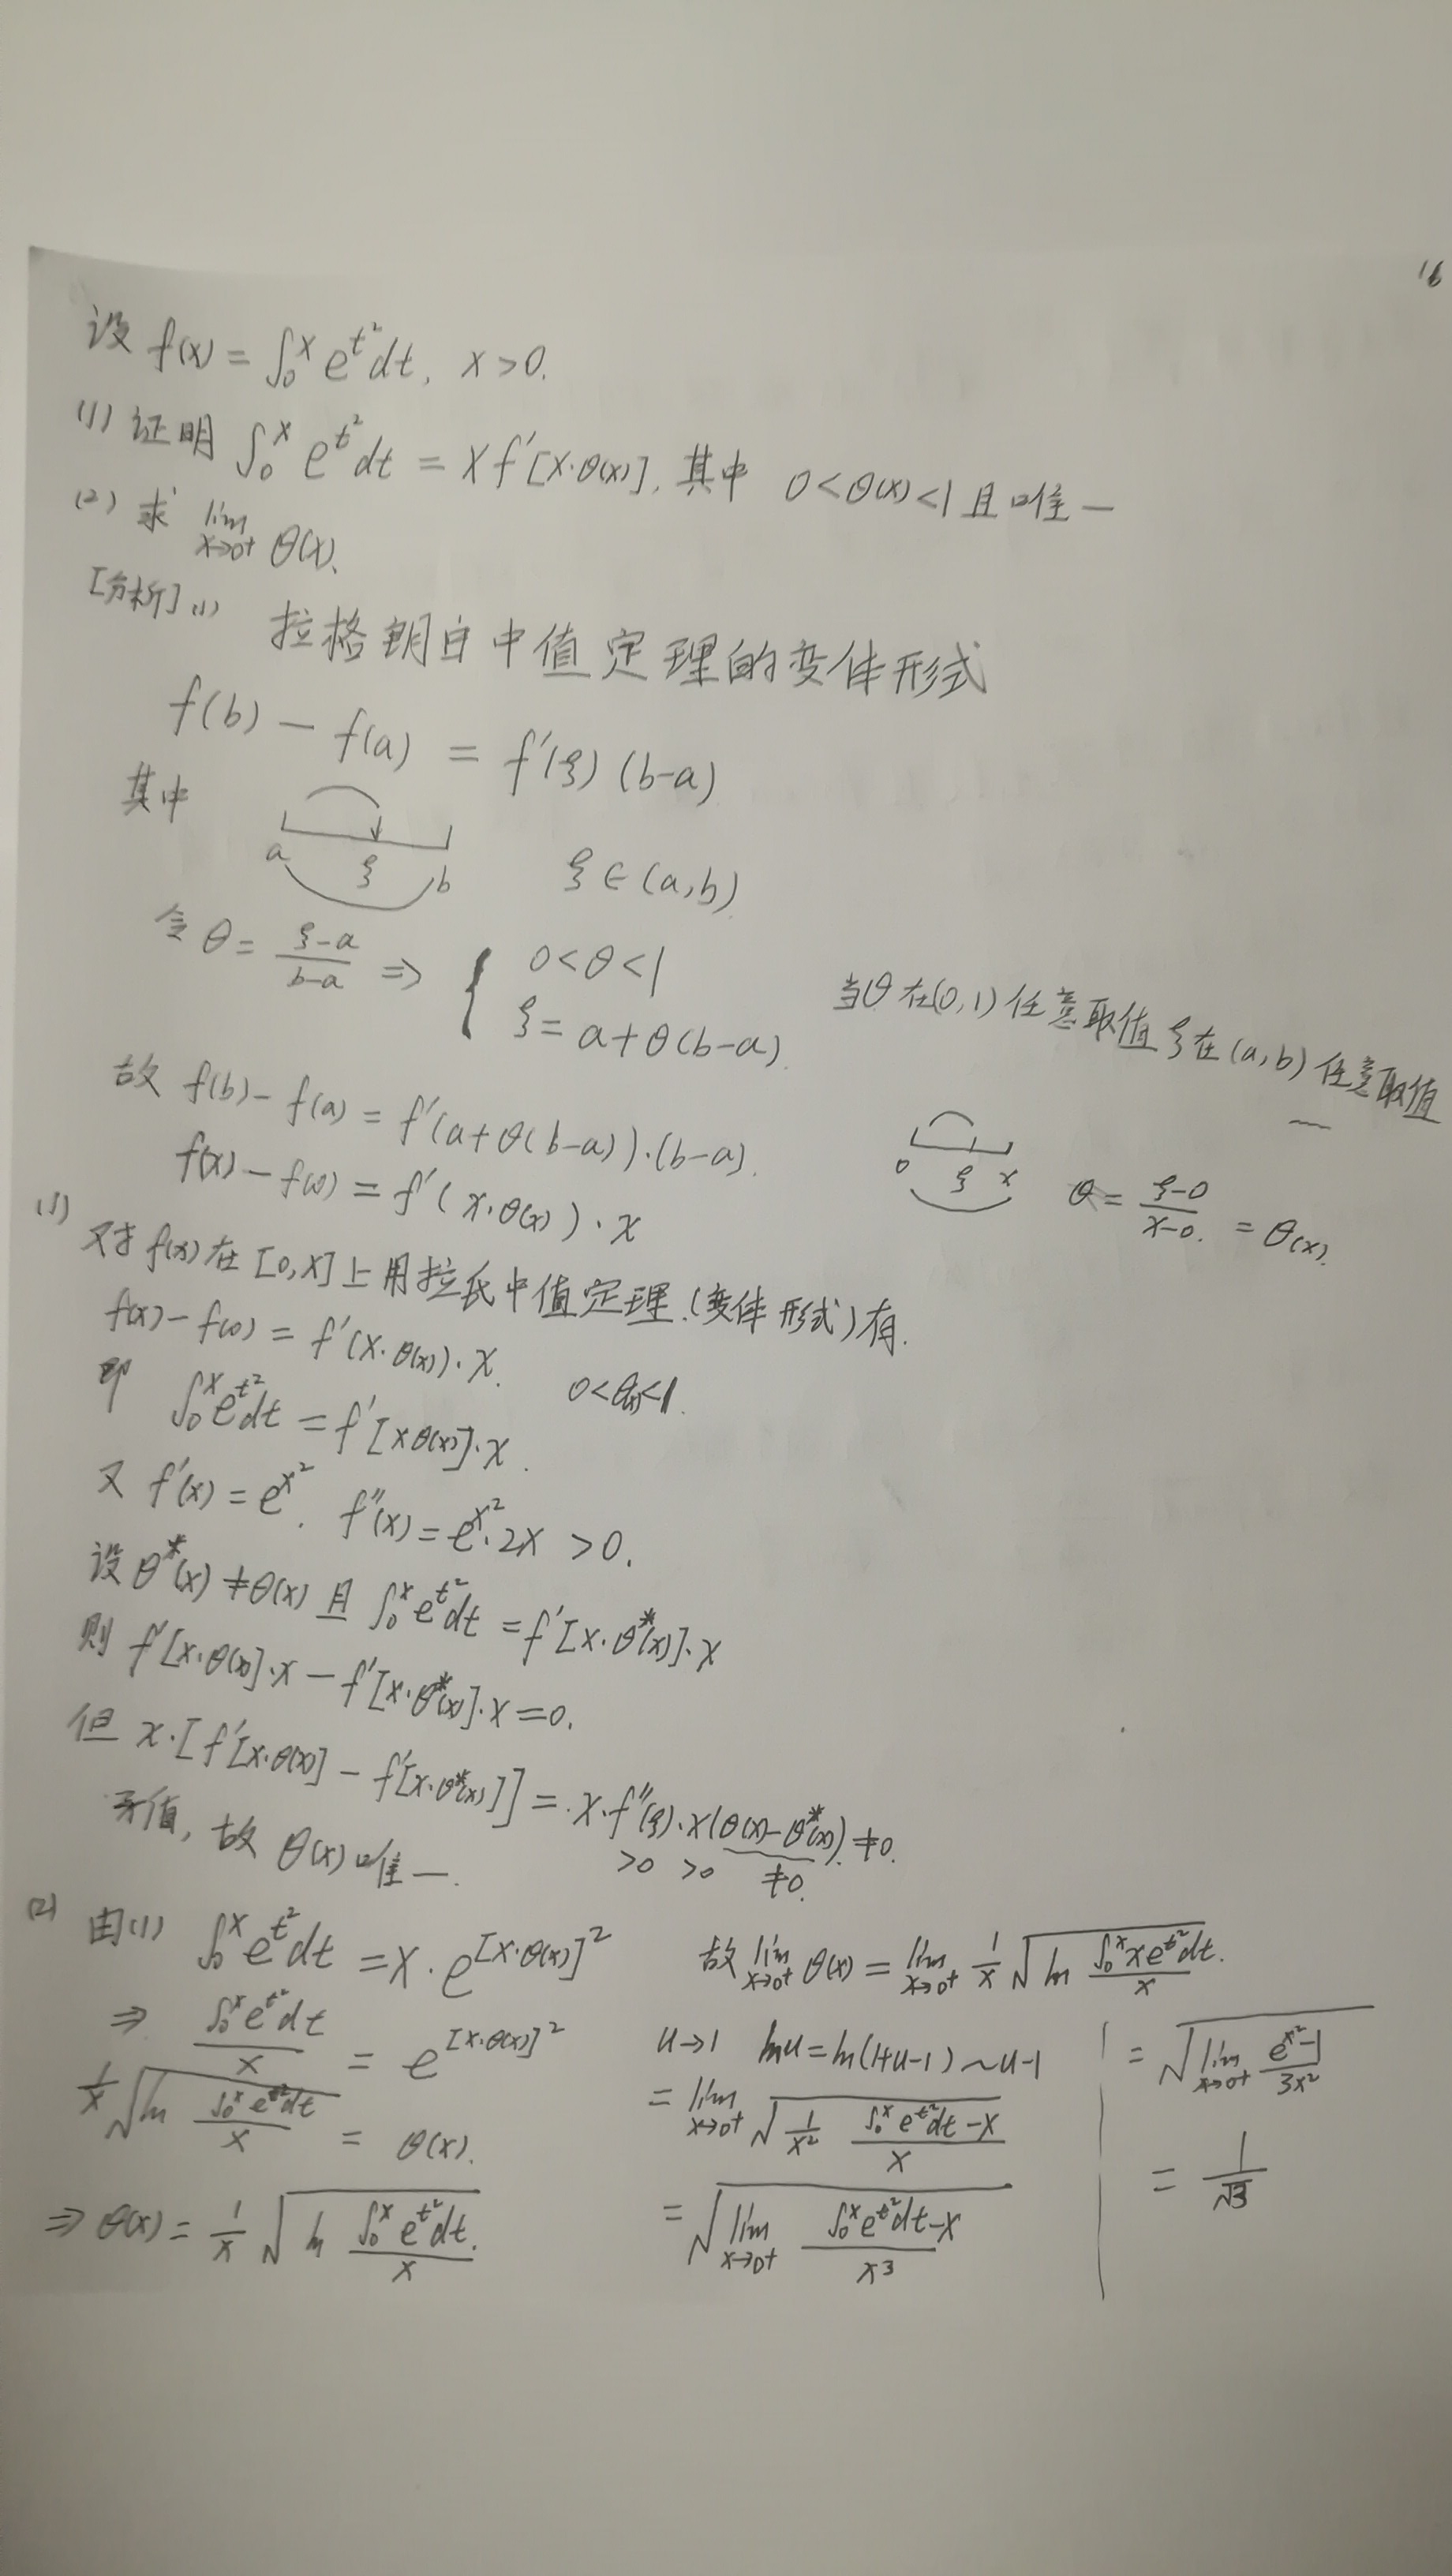 16
设 f(x) = ∫₀ˣ e^{t²}dt, x>0.
(1) 证明 ∫₀ˣ e^{t²}dt = x f′[x·θ(x)], 其中 0<θ(x)<1 且唯一
(2) 求 lim_{x→0+} θ(x).
[分析] (1) 拉格朗日中值定理的变体形式
f(b) − f(a) = f′(ξ) (b−a)
其中
a ξ b ξ∈(a,b)
令 θ = (ξ−a)/(b−a) ⇒ { 0<θ<1
ξ = a+θ(b−a).
当θ在(0,1)任意取值 ξ在(a,b)任意取值
故 f(b) − f(a) = f′(a+θ(b−a))·(b−a).
f(x) − f(0) = f′(x·θ(x))·x
0 ξ x θ = (ξ−0)/(x−0) = θ(x).
(1) 对 f(x) 在 [0,x] 上用拉氏中值定理.(变体形式)有.
f(x) − f(0) = f′(x·θ(x))·x. 0<θ(x)<1.
即 ∫₀ˣ e^{t²}dt = f′[xθ(x)]·x.
又 f′(x) = e^{x²}. f″(x) = e^{x²}·2x >0.
设 θ*(x) ≠ θ(x) 且 ∫₀ˣ e^{t²}dt = f′[x·θ*(x)]·x
则 f′[x·θ(x)]·x − f′[x·θ*(x)]·x = 0.
但 x·[f′[x·θ(x)] − f′[x·θ*(x)]] = x·f″(ξ)·x(θ(x)−θ*(x)) ≠0.
>0 >0 ≠0.
故 θ(x) 唯一.
(2) 由(1) ∫₀ˣ e^{t²}dt = x·e^{[x·θ(x)]²}
⇒ ∫₀ˣ e^{t²}dt / x = e^{[x·θ(x)]²}
1/x √(ln (∫₀ˣ e^{t²}dt / x)) = θ(x).
⇒ θ(x) = 1/x √(ln (∫₀ˣ e^{t²}dt / x)).
故 lim_{x→0+} θ(x) = lim_{x→0+} 1/x √(ln (∫₀ˣ xe^{t²}dt / x)).
u→1 lnu = ln(1+u−1) ~ u−1
= lim_{x→0+} √(1/x² · (∫₀ˣ e^{t²}dt − x)/x)
= √(lim_{x→0+} (∫₀ˣ e^{t²}dt − x)/x³)
= √(lim_{x→0+} (e^{x²}−1)/3x²)
= 1/√3